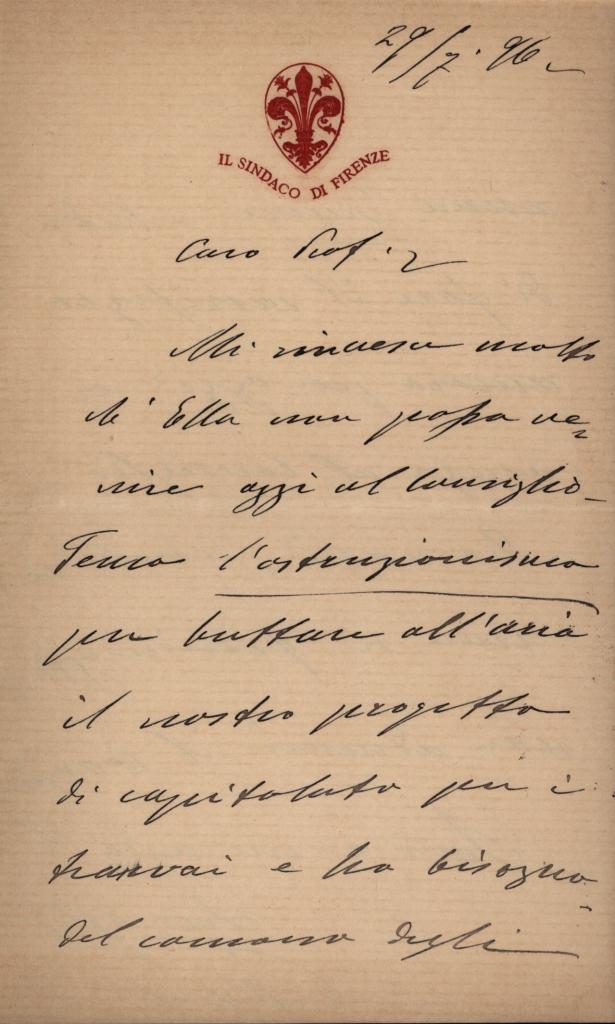 29/7. 96.
IL SINDACO DI FIRENZE
Caro Prof.
Mi rincresce molto
ch'Ella non possa ve=
nire oggi al Consiglio.
Temo l'ostruzionismo
per buttare all'aria
il nostro progetto
di capitolato per i
tranvai e ho bisogno
del concorso degli